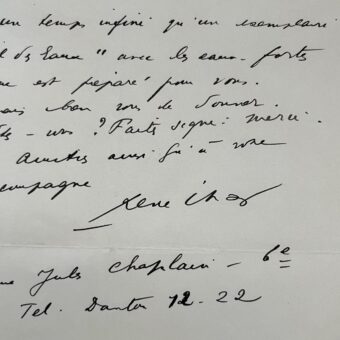 un temps infini qu'un exemplaire
des Eaux" avec les eaux-fortes
est préparé pour vous.
bon vous de donner.
vous? Faites signe: merci.
Amitiés ainsi qu'à votre
compagne
René Char
Jules Chaplain - 6e
Tel. Danton 12-22